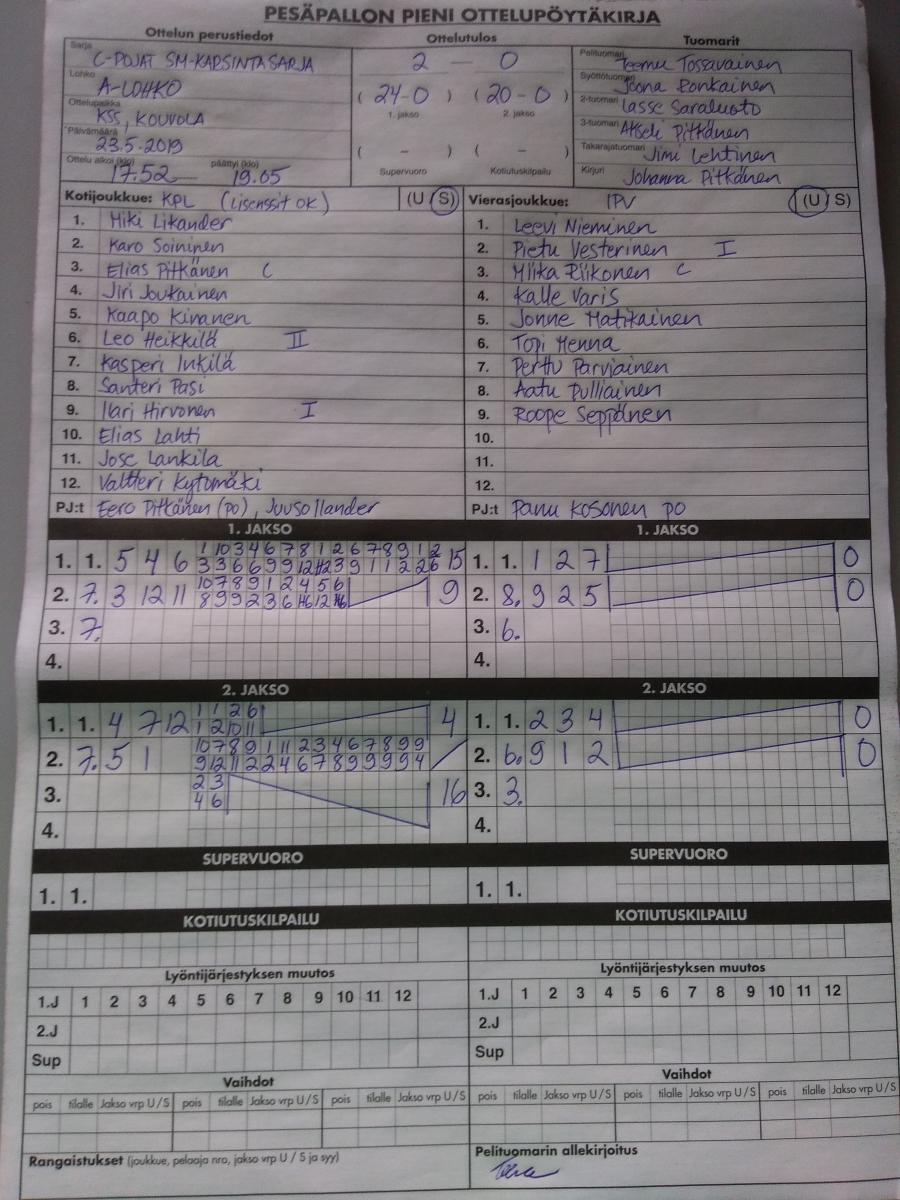 PESÄPALLON PIENI OTTELUPÖYTÄKIRJA
Ottelun perustiedot
Sarja
C-POJAT SM-KARSINTASARJA
Lohko
A-LOHKO
Ottelupaikka
KSS, KOUVOLA
Päivämäärä
23.5.2019
Ottelu alkoi (klo) 17.52 päättyi (klo) 19.05
Ottelutulos
2 — 0
( 24-0 ) ( 20-0 )
1. jakso 2. jakso
( - ) ( - )
Supervuoro Kotiutuskilpailu
Tuomarit
Pelituomari Teemu Tossavainen
Syöttötuomari Joona Ronkainen
2-tuomari Lasse Saraluoto
3-tuomari Akseli Pitkänen
Takarajatuomari Jimi Lehtinen
Kirjuri Johanna Pitkänen
Kotijoukkue: KPL (Lisenssit OK) (U/S)
1. Miki Likander
2. Karo Soininen
3. Elias Pitkänen C
4. Jiri Joukainen
5. Kaapo Kinanen
6. Leo Heikkilä II
7. Kasperi Inkilä
8. Santeri Pasi
9. Ilari Hirvonen I
10. Elias Lahti
11. Jose Lankila
12. Valtteri Kytömäki
PJ:t Eero Pitkänen (po), Juuso Ilander
Vierasjoukkue: IPV (U/S)
1. Leevi Nieminen
2. Pietu Vesterinen I
3. Miika Riikonen C
4. Kalle Varis
5. Jonne Matikainen
6. Topi Menna
7. Perttu Parviainen
8. Aatu Pulliainen
9. Roope Seppänen
10.
11.
12.
PJ:t Panu Kosonen PO
1. JAKSO
1. 1. 5 4 6
1 10 3 4 6 7 8 1 2 6 7 8 9 1 2
15
2. 7. 3 12 11
10 7 8 9 1 2 4 5 6
9
3. 7.
4.
1. JAKSO
1. 1. 1 2 7 0
2. 8. 9 2 5 0
3. 6.
4.
2. JAKSO
1. 1. 4 7 12
1 1 2 6
1 2 10 11
4
2. 7. 5 1
10 7 8 9 1 11 2 3 4 6 7 8 9 9
9 12 11 2 2 4 6 7 8 9 9 9 9 4
3.
2 3
4 6
16
4.
2. JAKSO
1. 1. 2 3 4 0
2. 6. 9 1 2 0
3. 3.
4.
SUPERVUORO
1. 1.
SUPERVUORO
1. 1.
KOTIUTUSKILPAILU
KOTIUTUSKILPAILU
Lyöntijärjestyksen muutos
1.J 1 2 3 4 5 6 7 8 9 10 11 12
2.J
Sup
Lyöntijärjestyksen muutos
1.J 1 2 3 4 5 6 7 8 9 10 11 12
2.J
Sup
Vaihdot
pois tilalle Jakso vrp U/S pois tilalle Jakso vrp U/S pois tilalle Jakso vrp U/S
Vaihdot
pois tilalle Jakso vrp U/S pois tilalle Jakso vrp U/S pois tilalle Jakso vrp U/S
Rangaistukset (joukkue, pelaaja nro, jakso vrp U / S ja syy)
Pelituomarin allekirjoitus